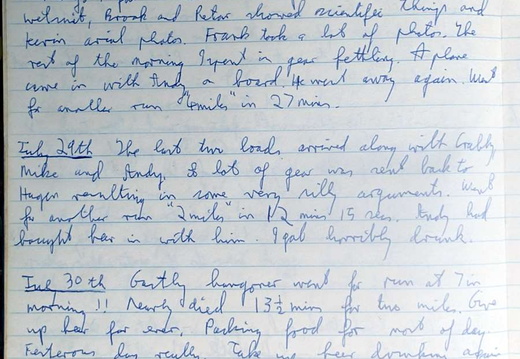 wetsuit, Brook and Peter showed scientific things and
Kevin arial photos. Frank took a lot of photos. The
rest of the morning I spent in gear fettling. A plane
came in with Andy on board. He went away again. Went
for another run "4miles" in 27 mins.
July 29th The last two loads arrived along with
Mike and Andy. A lot of gear was sent back to
Hagen resulting in some very silly arguments. Went
for another run "2miles" in 12 mins 15 secs. Andy had
bought beer in with him. I got horribly drunk.
July 30th Gastly hangover went for run at 7 in
morning!! Nearly died 13½ mins for two miles. Give
up beer for ever. Packing food for most of day.
day really. beer drinking again